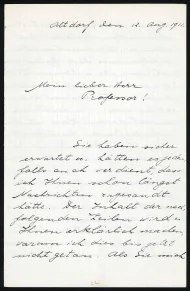 Altdorf, den 2. Aug 191
Mein lieber Herr
Professor!
Sie haben sicher
erwartet es, hätten es jeden
falls auch verdient, dass
ich Ihnen schon längst
Nachrichten zugesandt
hätte. Der Inhalt der nach
folgenden Zeilen wird es
Ihnen erklärlich machen
warum ich dies bis jetzt
nicht getan. Als Sie mich